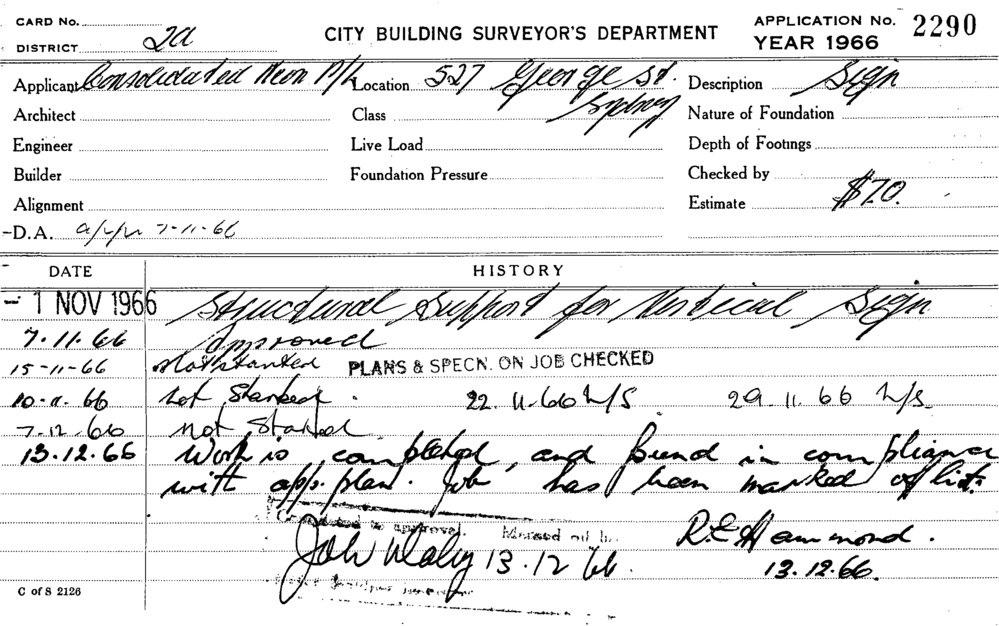 CARD No.
DISTRICT 2a
CITY BUILDING SURVEYOR'S DEPARTMENT
APPLICATION No. 2290
YEAR 1966
Applicant Consolidated Neon P/L Location 527 George St. Sydney Description Sign
Architect Class Nature of Foundation
Engineer Live Load Depth of Footings
Builder Foundation Pressure Checked by
Alignment Estimate $70.
D.A. app 7-11-66
DATE HISTORY
- 1 NOV 1966 Structural Support for Vertical Sign
7.11.66 approved
15-11-66 Not started PLANS & SPECN. ON JOB CHECKED
10-11-66 Not Started. 22.11.66 N/S. 29.11.66 N/S.
7-12-66 Not Started
13.12.66 Work is completed, and found in compliance
with app. plan. Job has been marked off list.
Completed to approval. Marked off
R.E. Hammond.
13.12.66
13.12.66.
C of S 2126